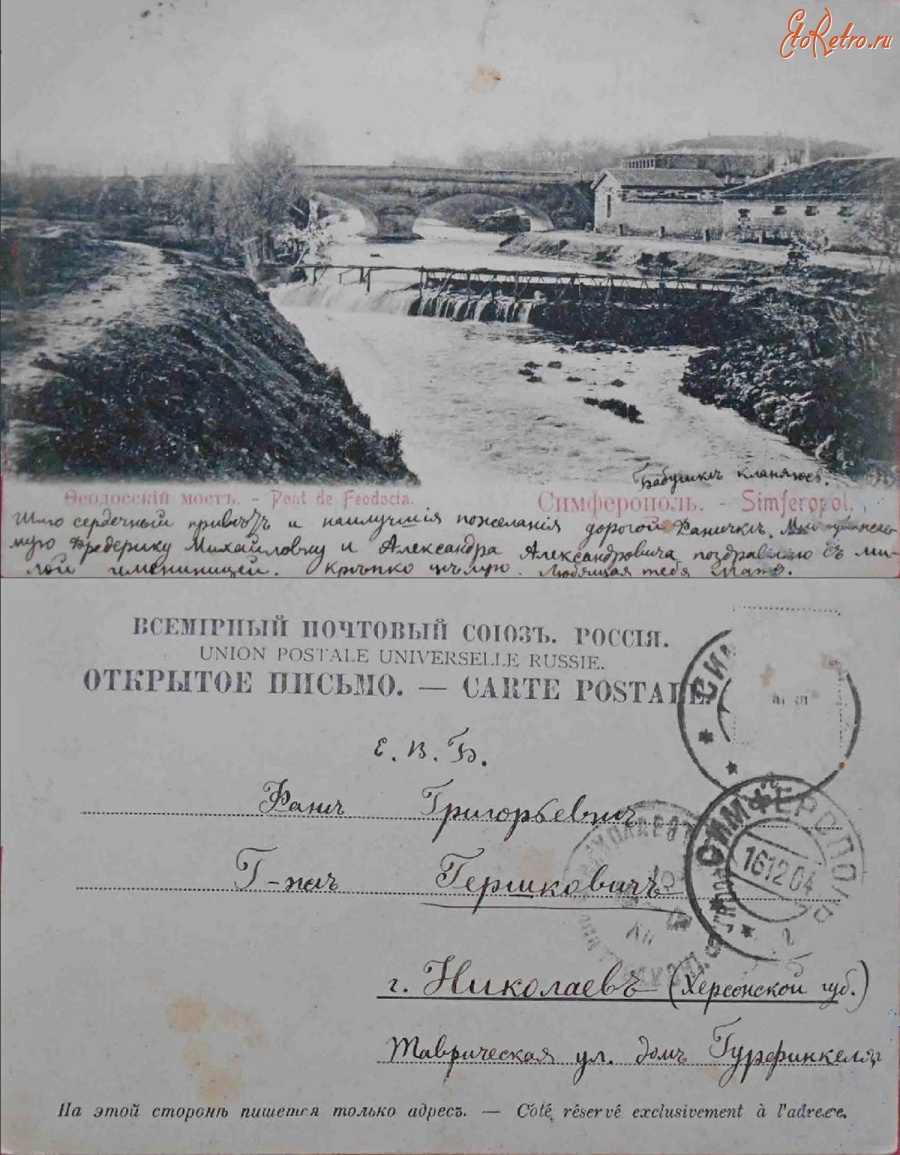 EtoRetro.ru
Бабушкѣ кланяюсь.
Ѳеодосскій мостъ. - Pont de Feodocia. Симферополь. - Simferopol.
Шлю сердечный привѣтъ и наилучшія пожеланія дорогой Фаничкѣ.
мую Фредерику Михайловну и Александра Александровича поздравляю съ ми-
лой имениницей. Крѣпко цѣлую. Любящая тебя
ВСЕМІРНЫЙ ПОЧТОВЫЙ СОЮЗЪ. РОССІЯ.
UNION POSTALE UNIVERSELLE RUSSIE.
ОТКРЫТОЕ ПИСЬМО. — CARTE POSTALE.
СИМ
Е. В. Б.
Фанѣ Григорьевнѣ
СИМФЕРОПОЛЬ
16 12 04
2
Г-жѣ Гершковичъ
г. Николаевъ (Херсонской губ.)
Таврическая ул. домъ Гурфинкеля
На этой сторонѣ пишется только адресъ. — Côté réservé exclusivement à l'adresse.